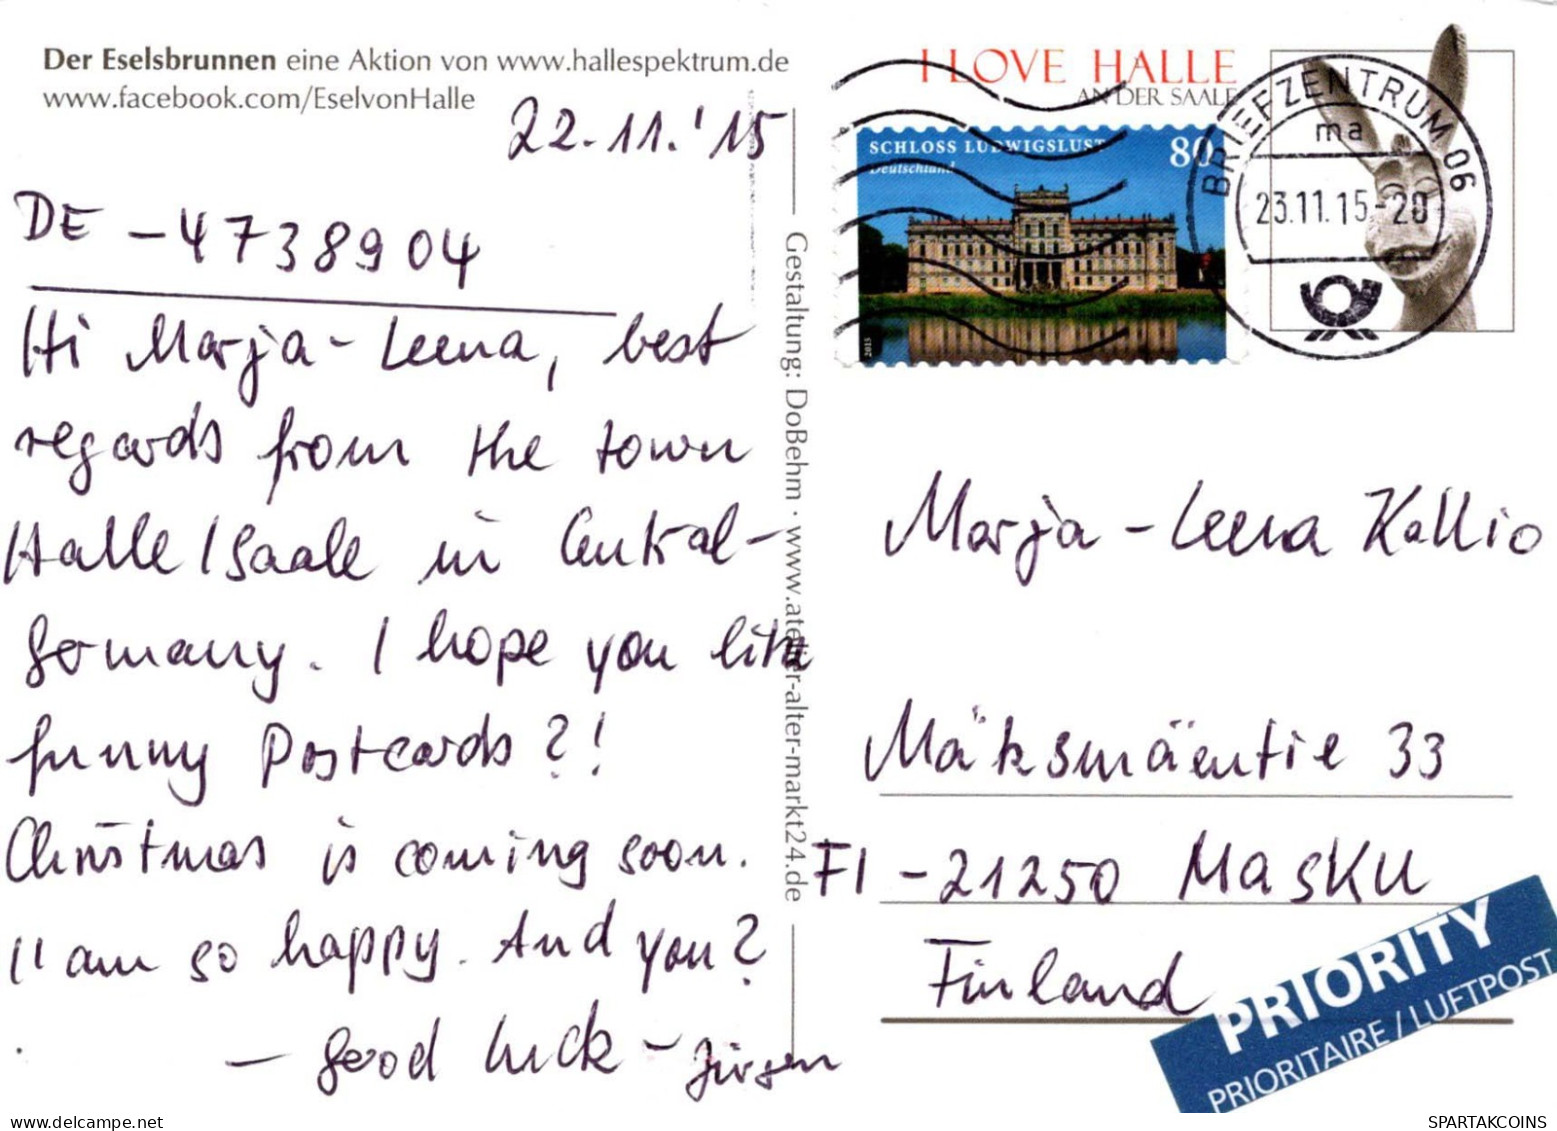 Der Eselsbrunnen eine Aktion von www.hallespektrum.de
www.facebook.com/EselvonHalle
22.11.'15
DE -4738904
Hi Marja-Leena, best
regards from the town
Halle/Saale in Central-
Germany. I hope you like
funny Postcards?!
Christmas is coming soon.
I'am so happy. And you?
- good luck - Jürgen
Gestaltung: DoBehm · www.atelier-alter-markt24.de
I LOVE HALLE
AN DER SAALE
SCHLOSS LUDWIGSLUST 80
Deutschland
2015
BRIEFZENTRUM 06
ma
23.11.15-20
Marja-Leena Kallio
Mäksmäentie 33
FI -21250 MASKU
Finland
PRIORITY
PRIORITAIRE / LUFTPOST
SPARTAKCOINS